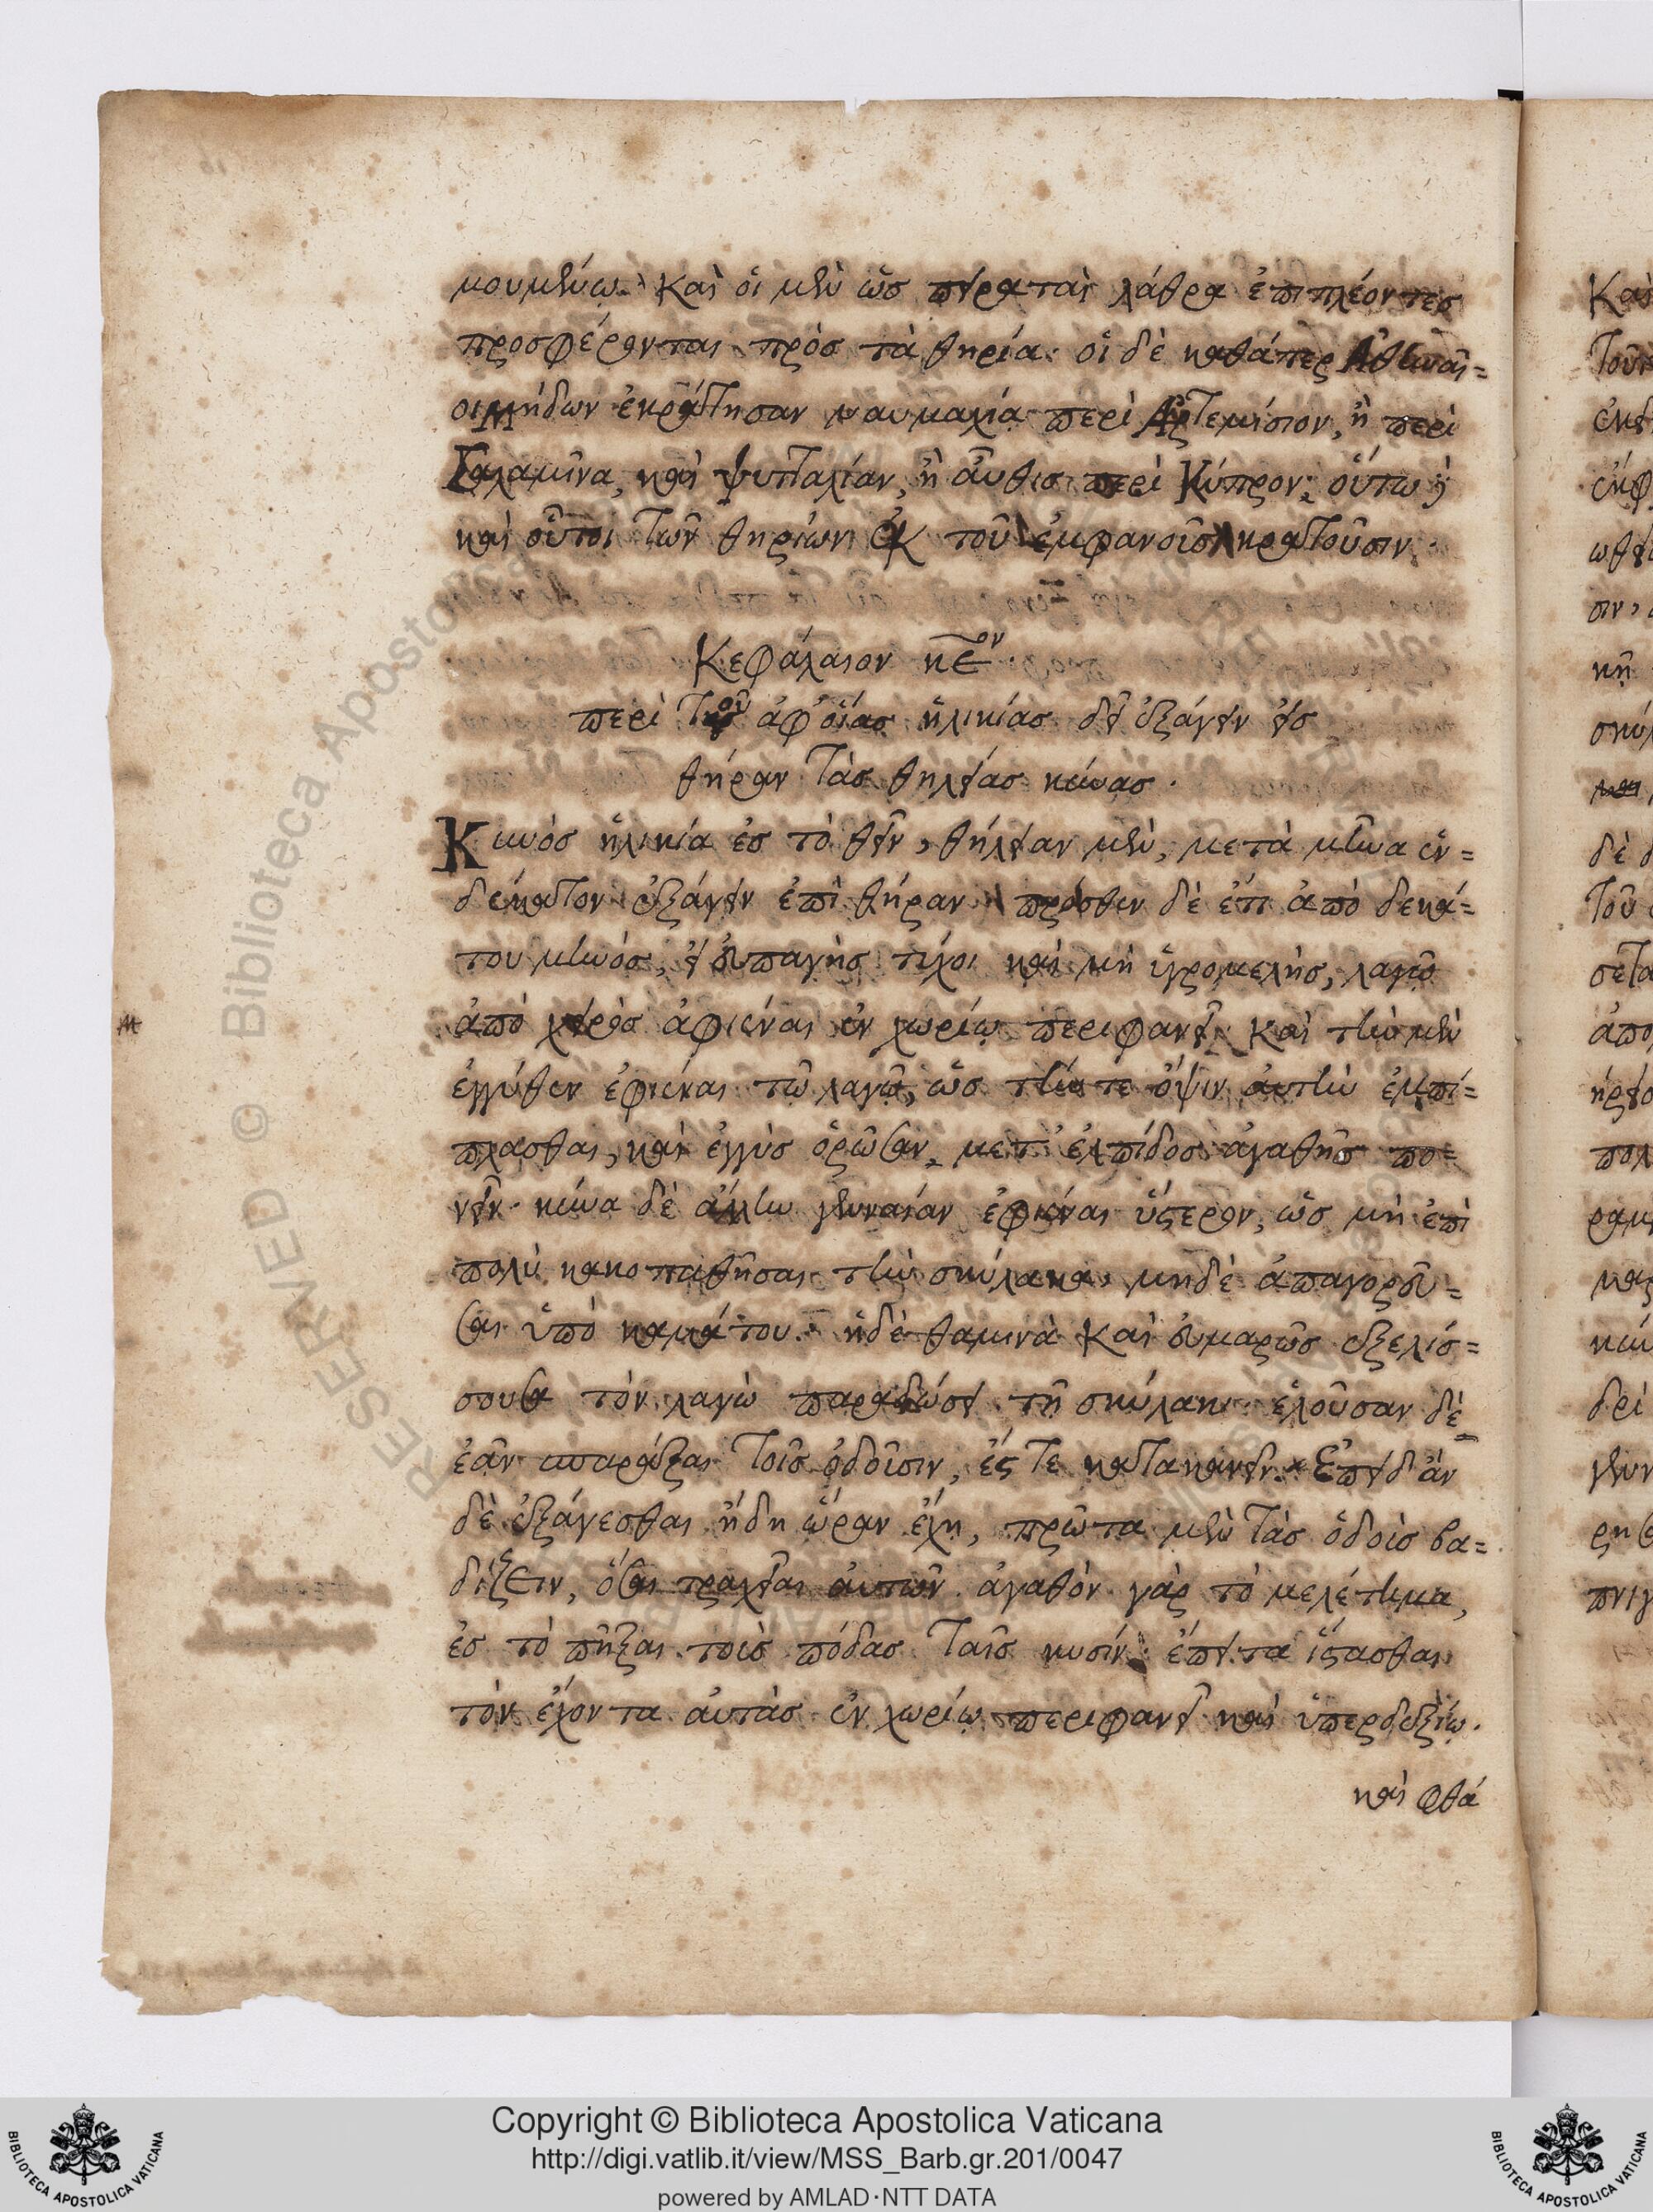 μουμένῳ. Καὶ οἱ μὲν ὡς πειραταὶ λάθρα ἐπιπλέοντες
προσφέρονται πρὸς τὰ θηρία· οἱ δὲ καθάπερ Ἀθηναῖ=
οι Μήδων ἐκράτησαν ναυμαχία περὶ Ἀρτεμίσιον, ἢ περὶ
Σαλαμῖνα, καὶ ψυτταλίαν, ἢ αὖθις περὶ Κύπρον, οὕτω
καὶ οὗτοι τῶν θηρίων ἐκ τοῦ ἐμφανοῦς κρατοῦσιν.
Κεφάλαιον κεον.
περὶ τοῦ ἀφ' οἵας ἡλικίας δεῖ ἐξάγειν εἰς
θήραν τὰς θηλείας κύνας.
Κυνὸς ἡλικία ἐς τὸ θεῖν, θήλειαν μὲν, μετὰ μῆνα ἑν=
δέκατον ἐξάγειν ἐπὶ θήραν πρόσθεν δὲ ἔτι ἀπὸ δεκά=
του μηνός, εἰ εὐπαγὴς τύχοι καὶ μὴ ὑγρομελὴς, λαγῶ
ἀπὸ χειρὸς ἀφιέναι ἐν χωρίῳ περιφανεῖ. Καὶ τὴν μὲν
ἐγγύθεν ἐφιέναι τῷ λαγῷ, ὡς τήν τε ὄψιν αὐτὴν ἐμπί=
πλασθαι, καὶ ἐγγὺς ὁρῶσαν, μετ' ἐλπίδος ἀγαθῆς πο=
νεῖν. κύνα δὲ ἄλλην γενναίαν ἐφιέναι ὕστερον, ὡς μὴ ἐπὶ
πολὺ κακοπαθῆσαι τὴν σκύλακα, μηδὲ ἀπαγορεῦ=
σαι ὑπὸ καμάτου. ἡ δὲ θαμινὰ Καὶ εὐμαρῶς ἐξελίσ=
σουσα τὸν λαγὼ παραδώσει τῇ σκύλακι. ἑλοῦσαν δὲ
ἐᾶν σπαράξαι τοῖς ὀδοῦσιν, ἔς τε κατακανεῖν. Ἐπειδὰν
δὲ ἐξάγεσθαι ἤδη ὥραν ἔχῃ, πρῶτα μὲν τὰς ὁδοὺς βα=
δίζειν, ὅσαι τραχεῖαι αὐτῶν. ἀγαθὸν γὰρ τὸ μελέτημα,
ἐς τὸ πῆξαι τοὺς πόδας ταῖς κυσίν. ἔπειτα ἵστασθαι
τὸν ἔχοντα αὐτὰς ἐν χωρίῳ περιφανεῖ καὶ ὑπερδεξίῳ.
καὶ φθά
RESERVED © Biblioteca Apostolica
Copyright © Biblioteca Apostolica Vaticana
http://digi.vatlib.it/view/MSS_Barb.gr.201/0047
powered by AMLAD·NTT DATA
BIBLIOTECA APOSTOLICA VATICANA
BIBLIOTECA APOSTOLICA VATICANA